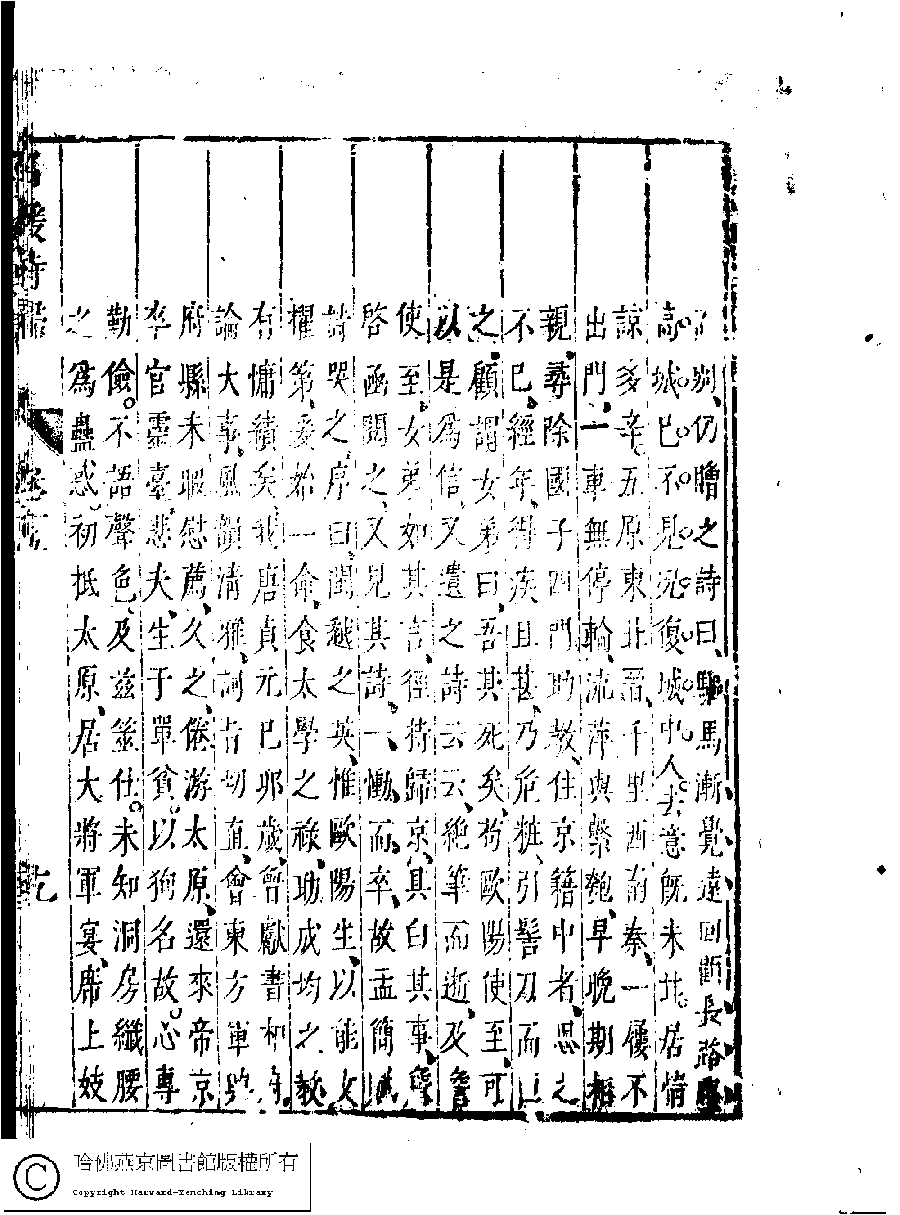 別、仍贈之詩曰、驅馬漸覺遠回顧長路塵
高城已不見况復城中人去意既未甘居情
諒多辛五原東北晉千里西南秦一屨不
出門、一車無停輪、流萍與繫匏、早晚期相
親、尋除國子四門助教、住京籍中者、思之
不已、經年、得疾且甚、乃危粧、引髻刀而匣
之、顧謂女弟曰、吾其死矣、苟歐陽使至、可
以是爲信、又遺之詩云云、絶筆而逝、及詹
使至、女弟如其言、徑持歸京、具白其事、詹
啓函閱之、又見其詩、一慟、而卒、故孟簡賦
詩哭之、序曰、閩越之英、惟歐陽生、以能文
擢第、爰始一命、食太學之祿、助成均之教、
有慵績矣、我唐貞元已卯歲、曾獻書相府、
論大事、風韻清雅、詞旨切直、會東方軍興、
府縣未暇慰薦、久之、倦游太原、還來帝京、
卒官靈臺、悲夫、生于單貧。以狥名故。心專
勤儉。不語聲色、及茲筮仕。未知洞房纖腰
之爲蠱惑、初抵太原、居大將軍宴、席上妓
名媛詩歸
九
哈佛燕京圖書館版權所有
Copyright Harvard-Yenching Library